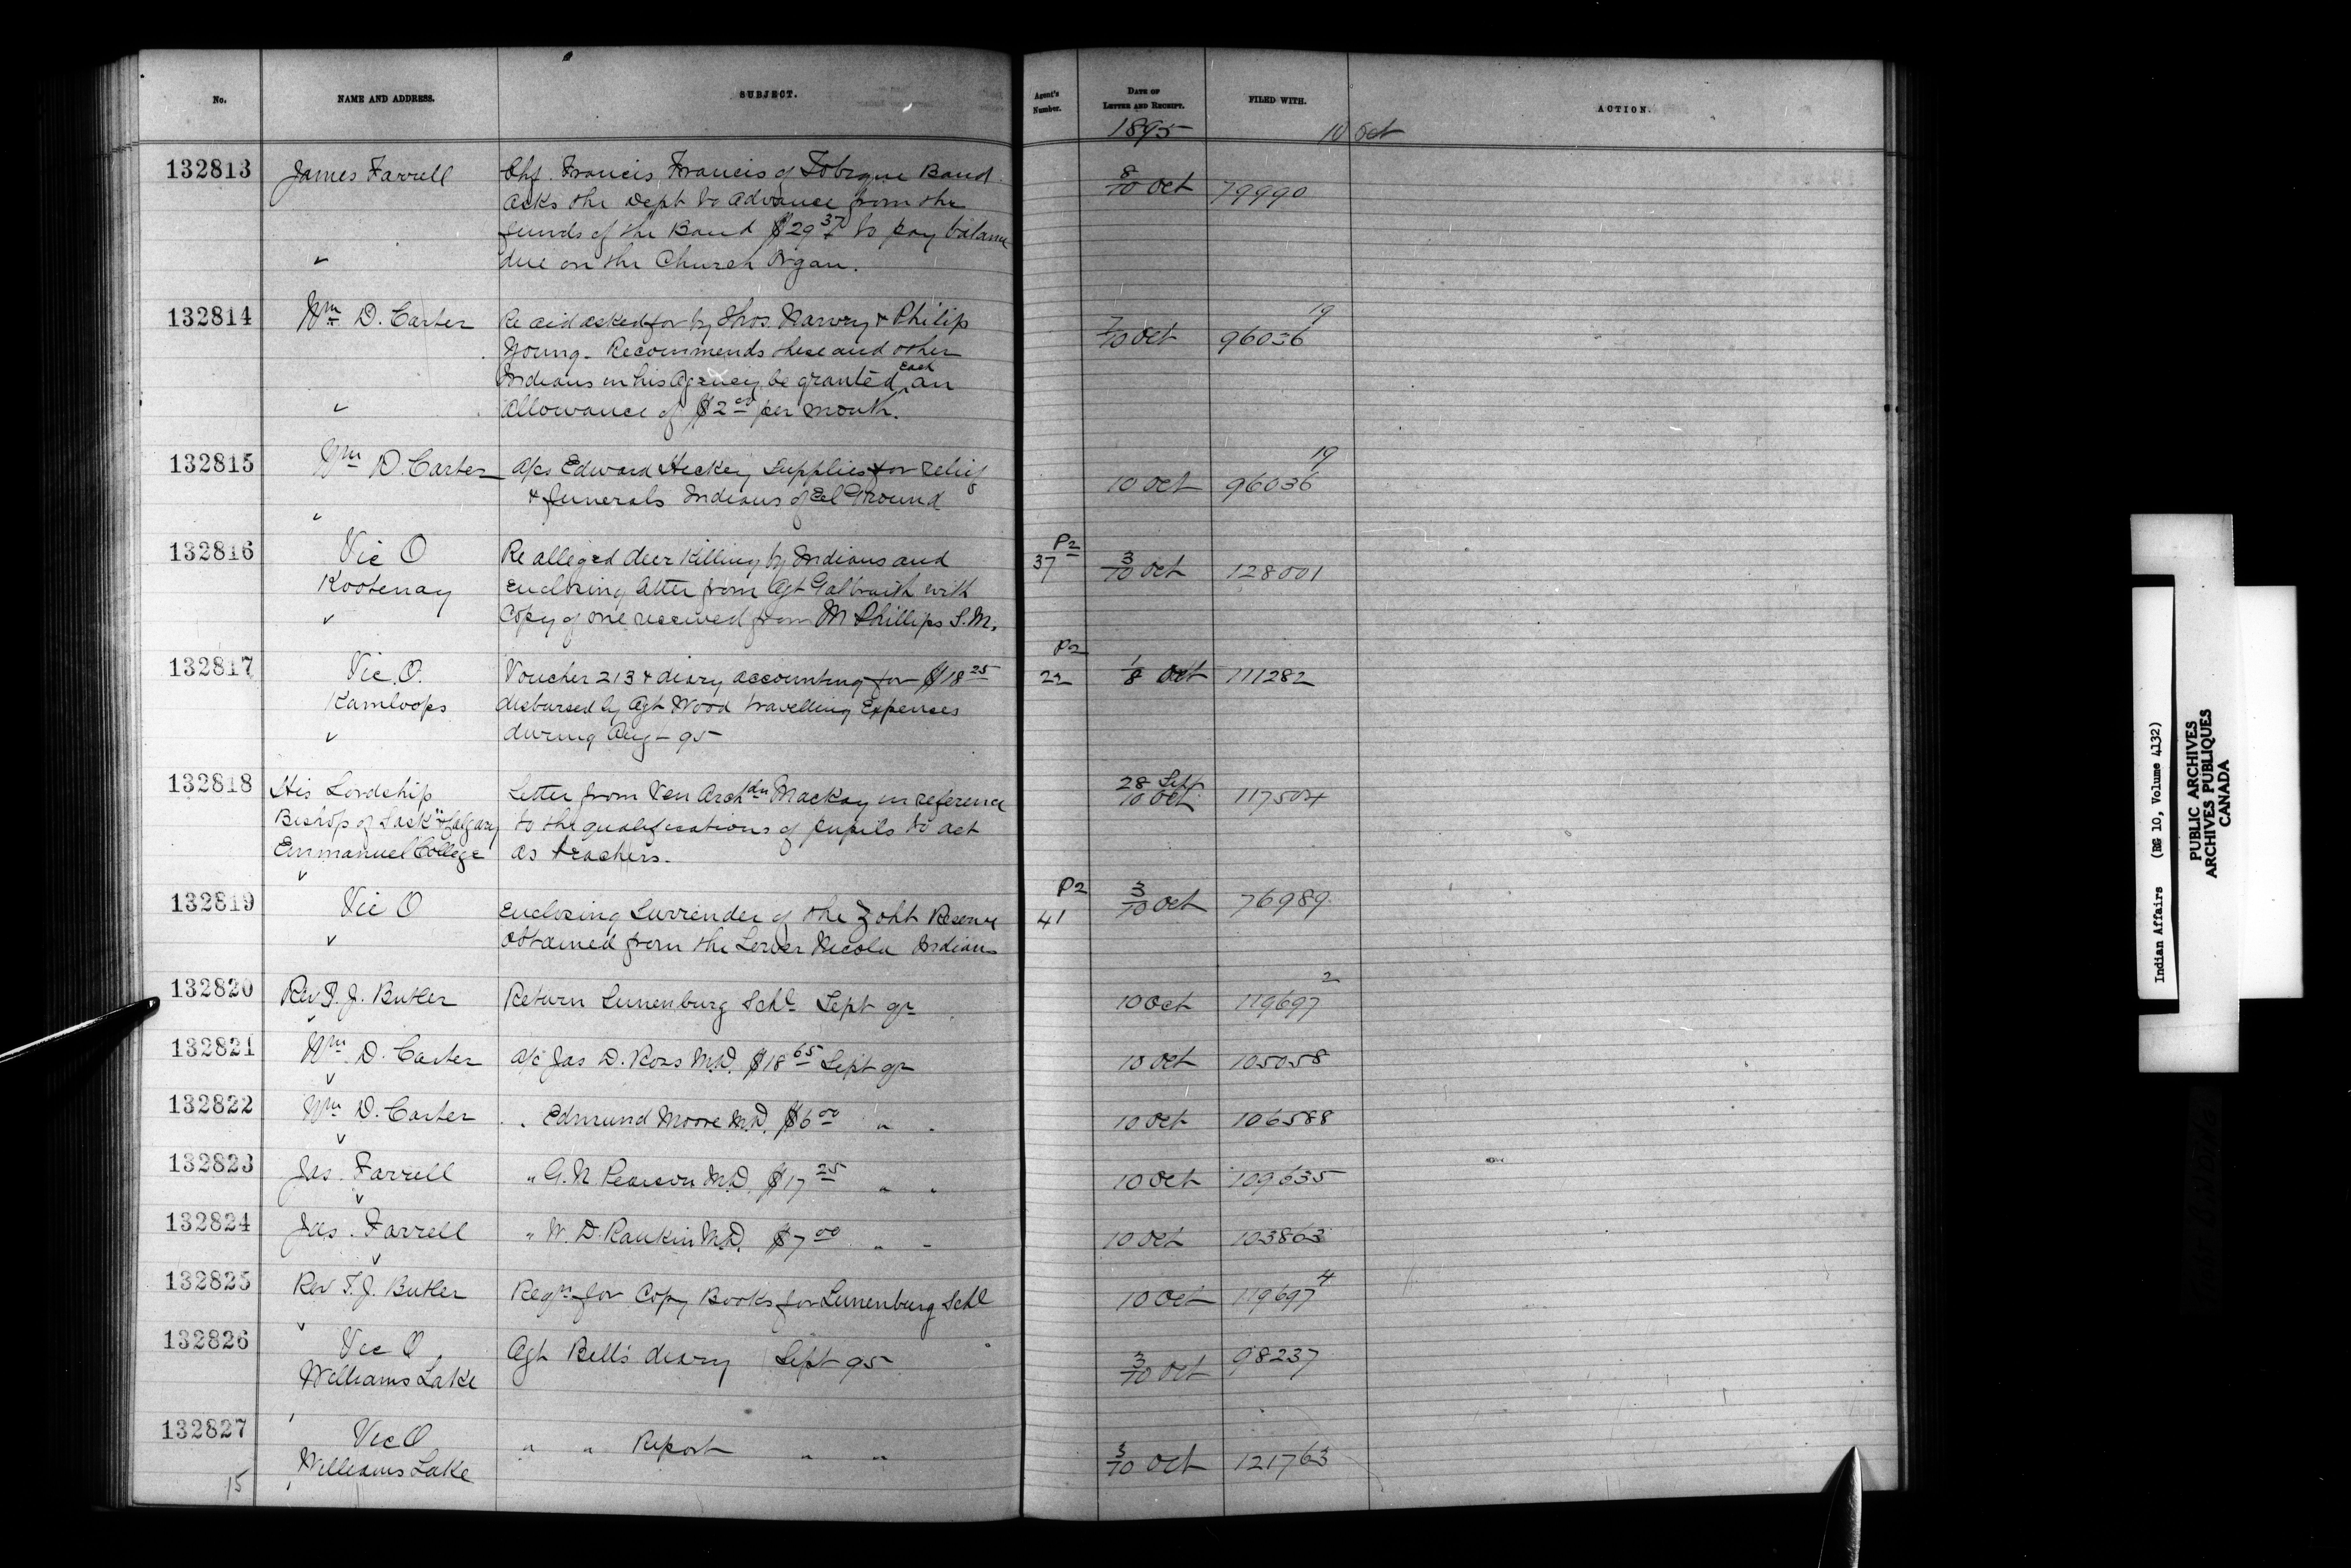 No. NAME AND ADDRESS. SUBJECT. Agent's Number. DATE OF LETTER AND RECEIPT. FILED WITH. ACTION.
1895 10 Oct
132813 James Farrell Chf. Francis Francis of Tobique Band 8/10 Oct 79990
asks the Dept to advance from the
funds of the Band $29 37 to pay balance
✓ due on the Church Organ.
132814 Wm D. Carter Re aid asked for by Thos. Narvey & Philip 7/10 Oct 96036 19
Young. Recommends these and other
Indians in his Agency be granted each an
✓ allowance of $2 00 per month.
132815 Wm D. Carter A/cs Edward Hickey Supplies for relief 10 Oct 96036 19
✓ & funerals Indians of Eel Ground
132816 Vic O Re alleged deer killing by Indians and P2 37 3/10 Oct 128001
Kootenay enclosing letter from Agt Galbraith with
✓ Copy of one received from M Phillips S.M.
132817 Vic. O. Voucher 213 & diary accounting for $18 25 P2 22 1/8 Oct 111282
Kamloops disbursed by Agt Wood travelling Expenses
✓ during Aug - 95
132818 His Lordship Letter from Ven Archdn Mackay in reference 28 Sept 10 Oct 117504
Bishop of Sask'n & Calgary to the qualifications of pupils to act
Emmanuel College as teachers.
✓
132819 Vic O Enclosing Surrender of the Zoht Reserve P2 41 3/10 Oct 76989
✓ obtained from the Lower Nicola Indians
132820 Rev T. J. Butler Return Lunenburg Schl Sept qr 10 Oct 119697 2
✓
132821 Wm D. Carter a/c Jas D. Ross M.D. $18 65 Sept qr 10 Oct 105058
✓
132822 Wm D. Carter " Edmund Moore M.D. $6 00 " " 10 Oct 106588
✓
132823 Jas. Farrell " G. N. Pearson M.D. $17 25 " " 10 Oct 109635
✓
132824 Jas. Farrell " W. D. Rankin M.D. $7 00 " " 10 Oct 103863
✓
132825 Rev T. J. Butler Reqn for Copy Books for Lunenburg Schl 10 Oct 119697 4
✓
132826 Vic O Agt Bell's diary Sept 95 3/10 Oct 98237
Williams Lake
132827 Vic O " " Report " " 3/10 Oct 121763
Williams Lake
15
Indian Affairs (RG 10, Volume 4132)
PUBLIC ARCHIVES
ARCHIVES PUBLIQUES
CANADA